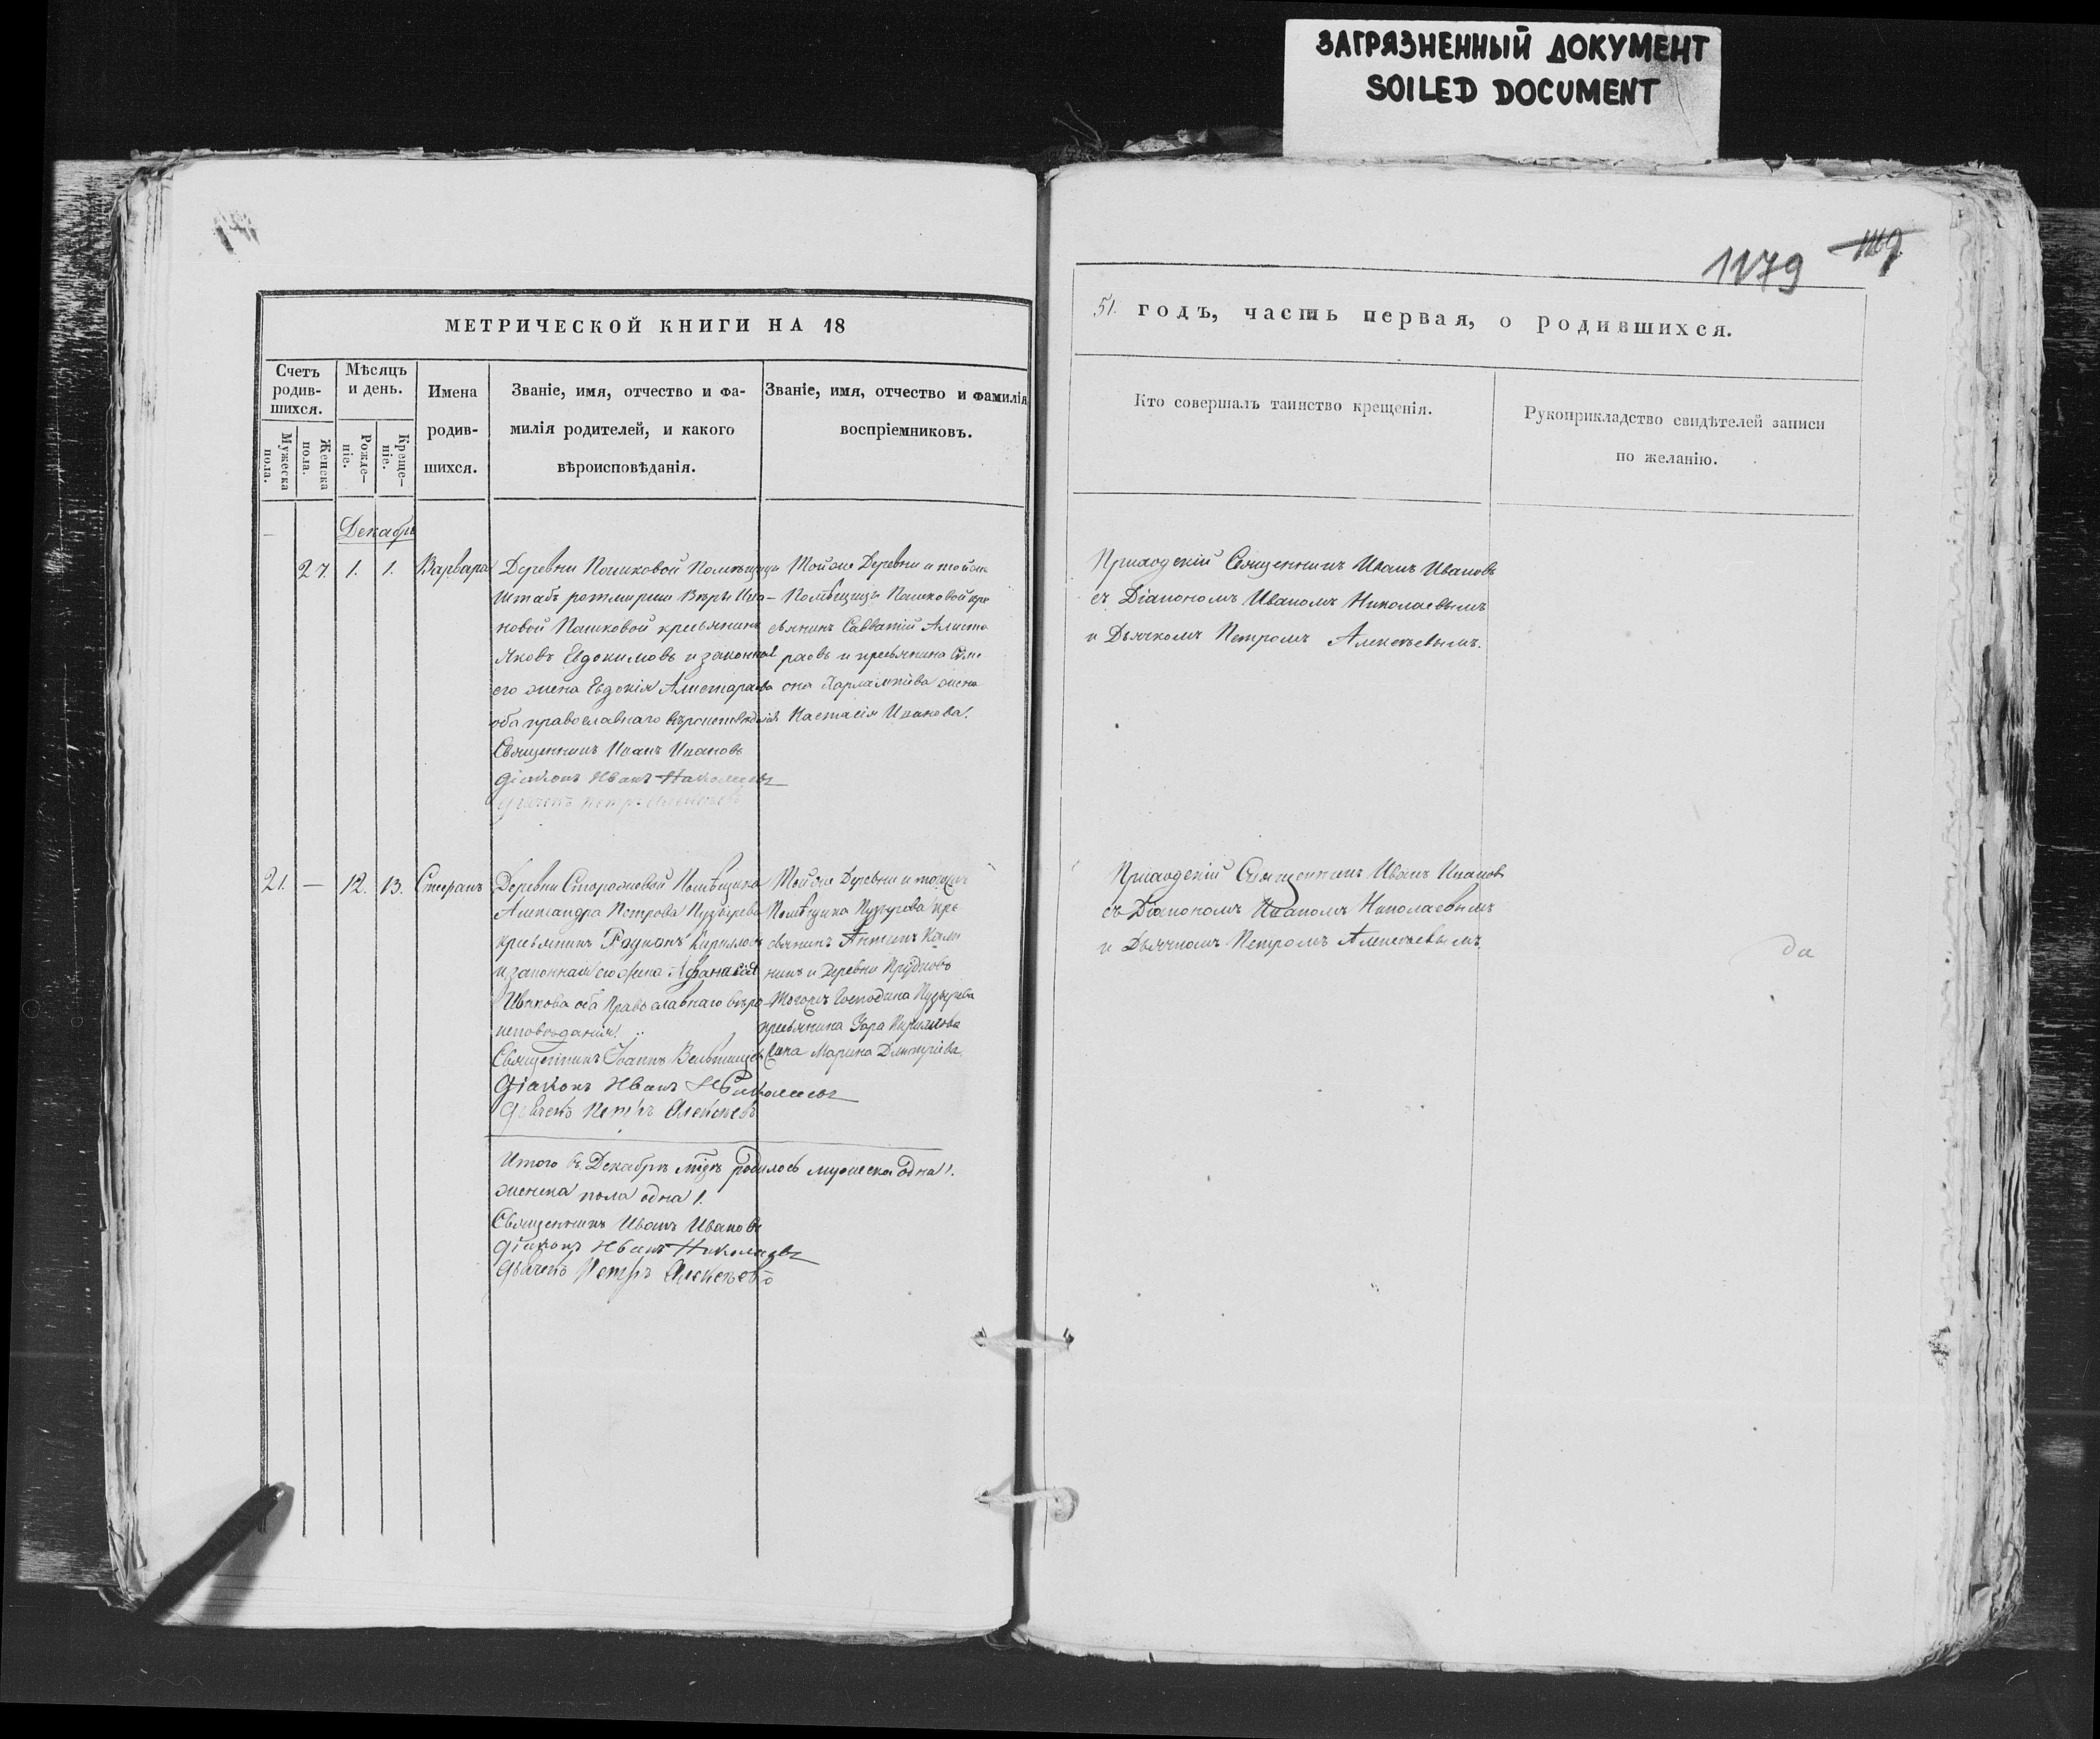 ЗАГРЯЗНЕННЫЙ ДОКУМЕНТ
SOILED DOCUMENT
1179
МЕТРИЧЕСКОЙ КНИГИ НА 18
51. годъ, часть первая, о родившихся.
Счетъ родив-шихся.
Мужеска пола.
Женска пола.
Мѣсяцъ и день.
Рожде-ніе.
Креще-ніе.
Имена
родив-
шихся.
Званіе, имя, отчество и фа-
милія родителей, и какого
вѣроисповѣданія.
Званіе, имя, отчество и фамилія
воспріемниковъ.
Кто совершалъ таинство крещенія.
Рукоприкладство свидѣтелей записи
по желанію.
Декабрь
27. 1. 1. Варвара
Деревни Пашковой Помѣщицы
Штабъ ротмирши Вѣры Ива-
новой Пашковой крестьянинъ
Яковъ Евдокимовъ и законная
его жена Евдокія Алистархова
оба православнаго вѣроисповѣданія
Священникъ Иванъ Ивановъ
Діаконъ Иванъ Николаевъ
Дьячекъ Петръ Алексѣевъ
Той же Деревни и той же
Помѣщицы Пашковой кре
стьянинъ Савватій Алиста
рховъ и крестьянина Сем
она Харлампіева жена
Настасія Иванова.
Приходскій Священникъ Иванъ Ивановъ
съ Діакономъ Иваномъ Николаевымъ
и Дьячкомъ Петромъ Алексѣевымъ.
21. — 12. 13. Стефанъ
Деревни Сторожевой Помѣщика
Александра Петрова Пузырева
крестьянинъ Родионъ Кирилловъ
и законная его жена Афанасія
Ивакова оба Православнаго вѣро
исповѣданія.
Священникъ Іоаннъ
Діаконъ Иванъ Николаевъ
Дьячекъ Петръ Алексѣевъ
Той же Деревни и тогожъ
Помѣщика Пузырева кре
стьянинъ Антипъ
и Деревни Прудковъ
Тогожъ Господина Пузырева
крестьянина Кирилова
жена Марина Дмитріева.
Приходскій Священникъ Иванъ Ивановъ
съ Діакономъ Иваномъ Николаевымъ
и Дьячкомъ Петромъ Алексѣевымъ.
да
Итого въ Декабрѣ мцѣ родилось мужеска одна 1.
женска пола одна 1.
Священникъ Иванъ Ивановъ
Діаконъ Иванъ Николаевъ
Дьячекъ Петръ Алексѣевъ